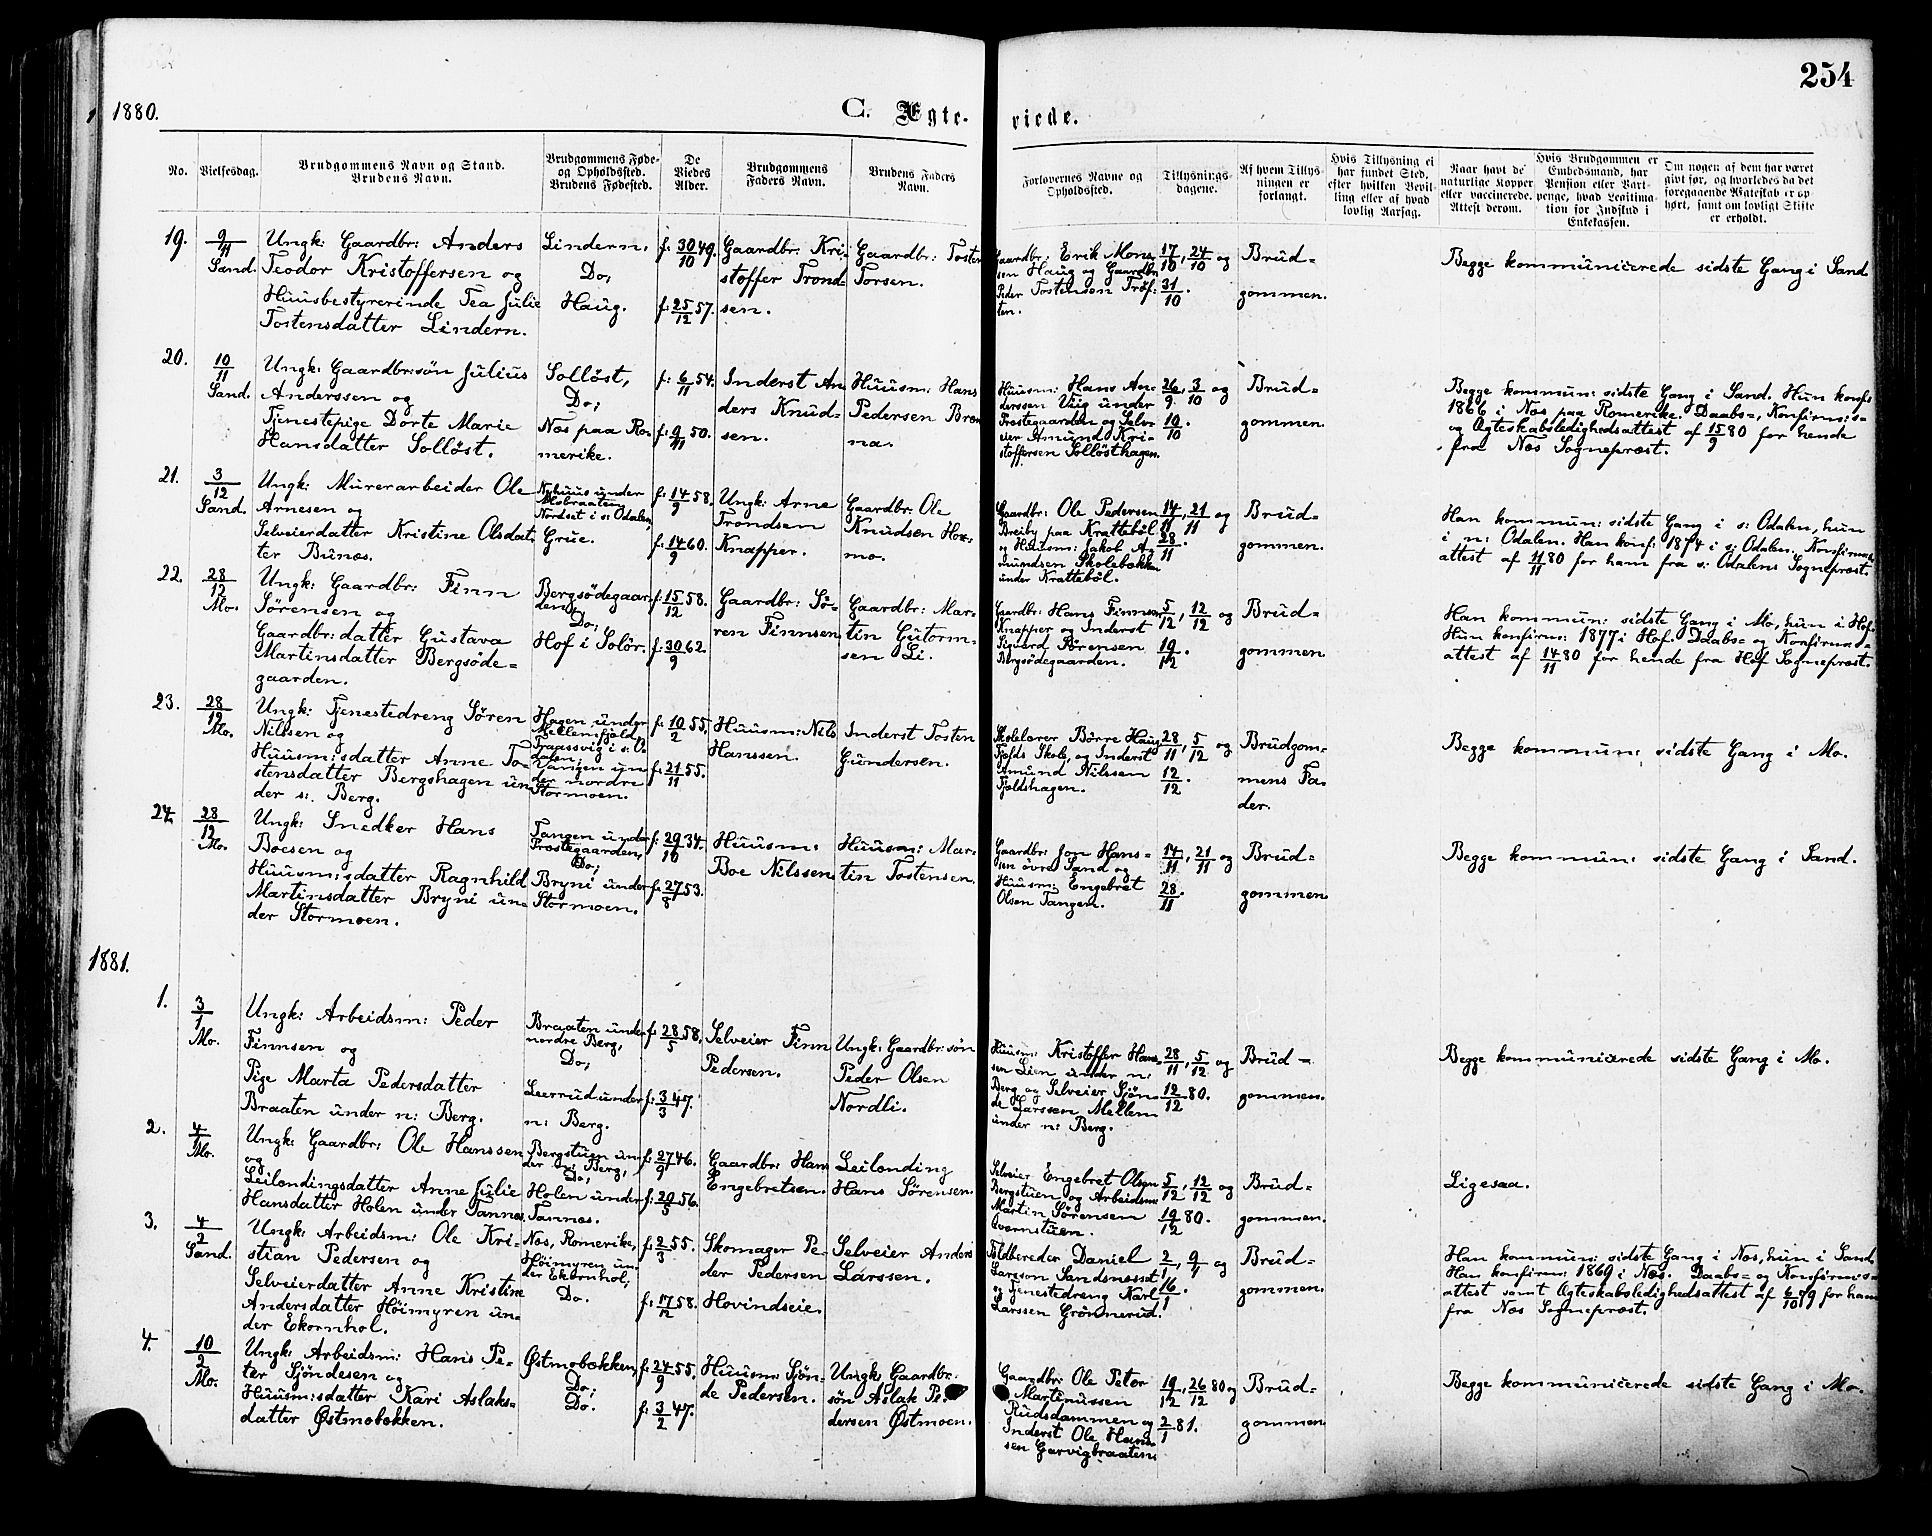 254
1880.
C. Ægte-
viede.
No.
Vielsesdag.
Brudgommens Navn og Stand.
Brudens Navn.
Brudgommens Føde-
og Opholdssted.
Brudens Fødested.
De
Viedes
Alder.
Brudgommens
Faders Navn.
Brudens Faders
Navn.
Forlovernes Navne og
Opholdssted.
Tillysnings-
dagene.
Af hvem Tillys-
ningen er
forlangt.
Hvis Tillysning ei
har fundet Sted,
efter hvilken Bevil-
ling eller af hvad
lovlig Aarsag.
Naar havt de
naturlige Kopper
eller vaccinerede.
Attest derom.
Hvis Brudgommen er
Embedsmand, har
Pension eller Vart-
penge, hvad Legitima-
tion for Indskud i
Enkekassen.
Om nogen af dem har været
gift før, og hvorledes da det
foregaaende Ægteskab er op
hørt, samt om lovligt Skifte
er erholdt.
19.
9/11
Sand.
Ungk: Gaardbr: Anders
Teodor Kristoffersen og
Huusbestyrerinde Tea Julie
Tostensdatter Lindern.
Lindern.
Do;
Haug.
f: 30/10 49.
f: 25/12 57.
Gaardbr: Kri-
stoffer Trond-
sen.
Gaardbr: Tosten
Torsen.
Gaardbr: Erik Mon-
sen Haug og Gaardbr
Peder Tostensen Trøf-
ten.
17/10, 24/10 og
31/10.
Brud=
gommen.
Begge kommunicerede sidste Gang i Sand
20.
10/11
Sand.
Ungk: Gaardbr:søn Julius
Anderssen og
Tjenestepige Dorte Marie
Hansdatter Solløst.
Solløst,
Do;
Næs paa Ro-
merike.
f: 6/11 54.
f: 9/11 50.
Inderst An
ders Knud-
sen.
Huusm: Hans
Pedersen Bræn
na.
Huusm: Hans An-
derssen Viig under
Præstegaarden og Selv-
eier Amund Kri-
stoffersen Solløsthagen.
26/9, 3/10 og
10/10.
Brud=
gommen.
Begge kommun: sidste Gang i Sand. Hun konf:
1866 i Næs paa Romerike. Daabs=, Konfirm:s=
og Ægteskabsledighedsattest af 15/9 80 for hende
fra Næs Sognepræst.
21.
3/12
Sand.
Ungk: Murerarbeider Ole
Arnesen og
Selveierdatter Kristine Olsdat-
ter Bunæs.
Nyhuus under
Mobraaten
Nordset i s: Odalen,
Grue.
f: 14/9 58.
f: 14/9 60.
Ungk: Arne
Trondsen
Knapper.
Gaardbr: Ole
Knudsen Hor-
mo.
Gaardbr: Ole Pedersen
Breiby paa Krattebøl
og Huusm: Jakob A-
mundsen Skolebækken
under Krattebøl.
14/11, 21/11 og
28/11.
Brud=
gommen.
Han kommun: sidste Gang i s: Odalen, hun
i n: Odalen. Han konf: 1874 i s: Odalen. Konfirma:
attest af 11/11 80 for ham fra s: Odalens Sognepræst.
22.
28/12
Mo.
Ungk: Gaardbr: Finn
Sørensen og
Gaardbr:datter Gustava
Martinsdatter Bergsøde-
gaarden.
Bergsødegaar-
den,
Do;
Hof i Solør.
f: 15/12 58.
f: 30/9 62.
Gaardbr: Sø-
ren Finnsen
Gaardbr: Mar-
tin Gutorm-
sen Li.
Gaardbr: Hans Finnsen
Knapper og Inderst
Sigvard Sørensen
Bergsødegaarden.
5/12, 12/12 og
19/12.
Brud=
gommen
Han kommun: sidste Gang i Mo, hun i Hof.
Hun konfirm: 1877 i Hof. Daabs= og Konfirma=
attest af 14/11 80 for hende fra Hof Sognepræst.
23.
28/12
Mo.
Ungk: Tjenestedreng Søren
Nilssen og
Huusm:sdatter Anne To-
stensdatter Bergshagen un
der s: Berg.
Hagen under
Mellemfjold,
Traassvig i s: O-
dalen;
Vangen un
der nordre
Stormoen.
f: 10/2 55.
f: 21/11 55.
Huusm: Nils
Hanssen.
Inderst Tosten
Gundersen.
Skolelærer Børre Haug
Fjølds Skole, og Inderst
Amund Nilssen
Fjøldshagen.
28/11, 5/12 og
12/12.
Brudgom=
mens Fa-
der.
Begge kommun: sidste Gang i Mo.
24.
28/12
Mo.
Ungk: Snedker Hans
Boesen og
Huusm:sdatter Ragnhild
Martinsdatter Bryni un-
der Stormoen.
Tangen under
Præstegaarden,
Do;
Bryni under
Stormoen.
f: 29/10 34.
f: 27/8 53.
Huusm:
Boe Nilssen
Huusm: Mar-
tin Tostensen.
Gaardbr: Jon Hans=
sen øvre Sand og
Huusm: Engebret
Olsen Tangen.
14/11, 21/11 og
28/11.
Brud=
gommen.
Begge kommun: sidste Gang i Sand.
1881.
1.
3/1
Mo.
Ungk: Arbeidsm: Peder
Finnsen og
Pige Marta Pedersdatter
Braaten under n: Berg.
Braaten under
nordre Berg,
Do;
Leerrud under
n: Berg.
f: 28/5 58.
f: 3/3 47.
Selveier Finn
Pedersen.
Ungk: Gaardbr:søn
Peder Olsen
Nordli.
Huusm: Kristoffer Hans-
sen Lien under n:
Berg og Selveier Sjøn-
de Larssen Mellem
under n: Berg.
28/11, 5/12 og
12/12 80.
Brud=
gommen.
Begge kommunicerede sidste Gang i Mo.
2.
4/1
Mo.
Ungk: Gaardbr: Ole Hanssen
og
Leilondingsdatter Anne Julie
Hansdatter Holen under Tannæs.
Bergstuen un-
der n: Berg,
Do;
Holen under
Tannæs.
f: 27/9 46.
f: 29/5 56.
Gaardbr: Hans
Engebretsen.
Leilonding
Hans Sørensen.
Selveier Engebret Olsen
Bergstuen og Arbeidsm:
Martin Sørensen
Qvernstuen.
5/12, 12/12 og
19/12 80.
Brud=
gommen.
Ligesaa.
3.
4/2
Sand.
Ungk: Arbeidsm: Ole Kri-
stian Pedersen og
Selveierdatter Anne Kristine
Andersdatter Høimyren un-
der Ekornhol.
Næs, Romerike,
Høimyren un-
der Ekornhol,
Do.
f: 2/3 55.
f: 17/12 58.
Skomager Pe-
der Pedersen
Hovindseie.
Selveier Anders
Larssen.
Foldbereder Daniel
Larsson Sandsnæsset
og Tjenestedreng Karl
Larssen Grønnerud.
2/1, 9/1 og
16/1.
Brud=
gommen.
Han kommun: sidste Gang i Næs, hun i Sand
Han konfirm: 1869 i Næs. Daabs= og Konfirm:s=
attest samt Ægteskabsledighedsattest af 6/10 79 for ham
fra Næs Sognepræst.
4.
10/2
Mo.
Ungk: Arbeidsm: Hans Pe-
ter Sjøndesen og
Huusm:sdatter Kari Aslaks-
datter Østmobækken.
Østmobækken,
Do;
Do.
f: 24/9 55.
f: 3/2 47.
Huusm: Sjøn-
de Pedersen.
Ungk: Gaardbr:
søn Aslak Pe-
dersen Østmoen.
Gaardbr: Ole Peter
Martinussen
Rudsdammen og
Inderst Ole Hans-
sen Garvigbraaten.
19/12, 26/12 80 og
2/1 81.
Brud=
gommen
Begge kommunicerede sidste Gang i Mo.